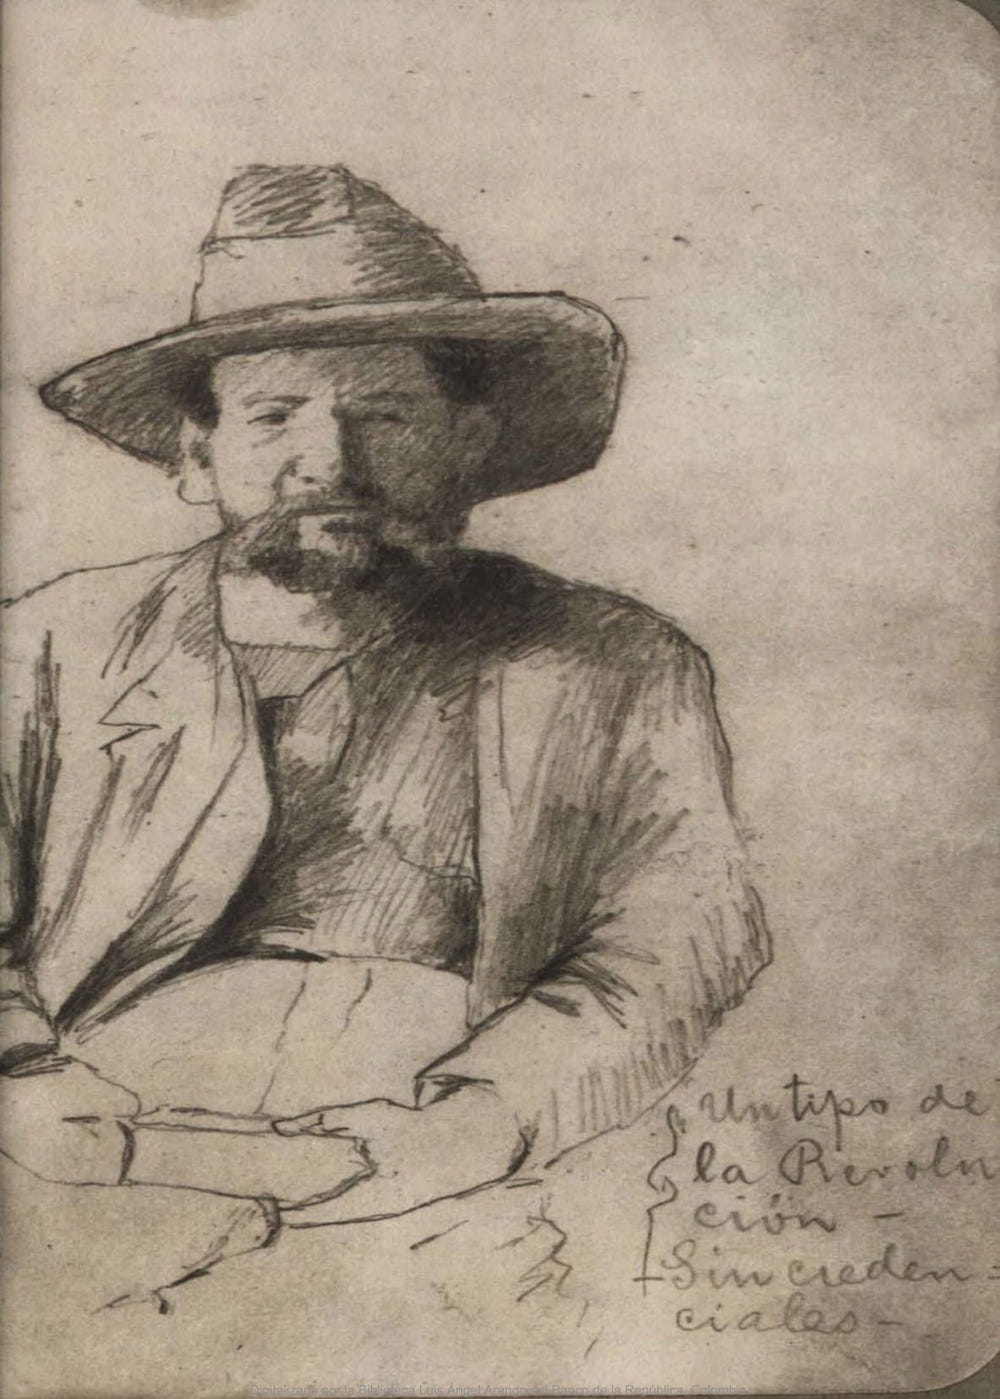 Un tipo de
la Revolu
ción -
Sin creden =
ciales -
Digitalizado por la Biblioteca Luis Ángel Arango del Banco de la República, Colombia